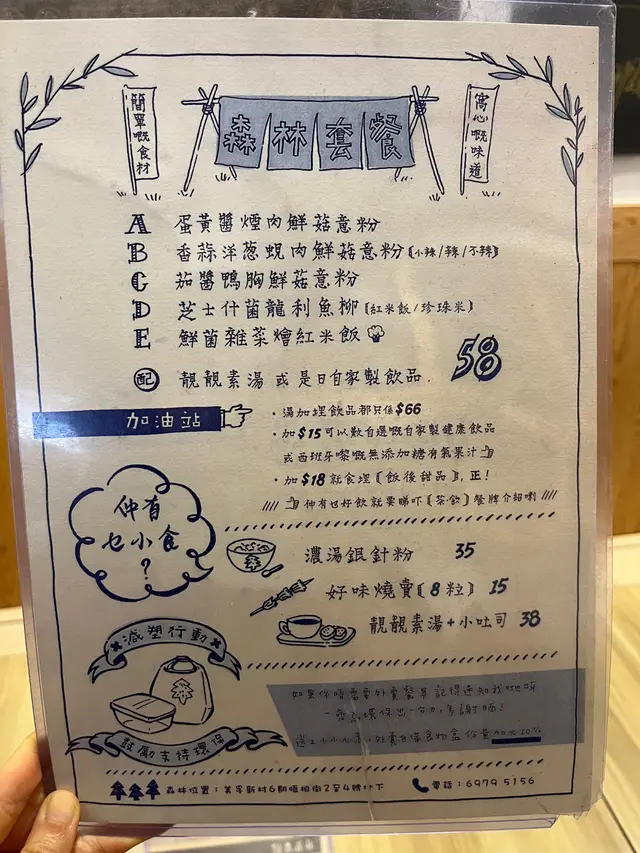 簡單嘅食材
森林套餐
窩心嘅味道
A 蛋黃醬煙肉鮮菇意粉
B 香蒜洋葱蜆肉鮮菇意粉〔小辣/辣/不辣〕
C 茄醬鴨胸鮮菇意粉
D 芝士什菌龍利魚柳〔紅米飯/珍珠米〕
E 鮮菌雜菜燴紅米飯
58
配 靚靚素湯 或 是日自家製飲品
加油站
・湯加埋飲品都只係$66
・加$15可以歎自選嘅自家製健康飲品
或西班牙嚟嘅無添加糖有氣果汁
・加$18就食埋〔飯後甜品〕,正!
仲有乜好飲就要睇吓〔茶‧飲〕餐牌介紹喇
仲有乜小食?
濃湯銀針粉 35
好味燒賣〔8粒〕 15
靚靚素湯+小吐司 38
減塑行動
鼓勵支持環保
如果你唔需要外賣餐具記得通知我哋呀
一齊為環保出一分力,多謝晒!
外賣自備食物盒 份量加大10%
森林位置:美孚新村6期 街2至4號地下
電話:6979 5156